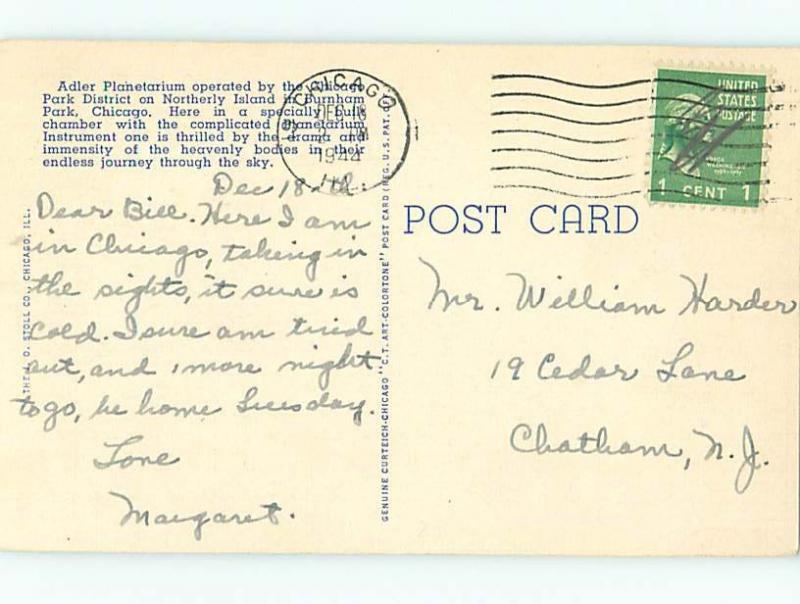 Adler Planetarium operated by the Chicago
Park District on Northerly Island in Burnham
Park, Chicago. Here in a specially built
chamber with the complicated Planetarium
Instrument one is thrilled by the drama and
immensity of the heavenly bodies in their
endless journey through the sky.
CHICAGO
DEC 18
1944
ILL.
1
UNITED
STATES
POSTAGE
1 CENT 1
POST CARD
Dec 18th.
Dear Bill. Here I am
in Chicago, taking in
the sights, it sure is
cold. I sure am tired
out, and 1 more night
to go, be home Tuesday.
Love
Margaret.
Mr. William Harder
19 Cedar Lane
Chatham, N.J.
THE J. O. STOLL CO., CHICAGO, ILL.
GENUINE CURTEICH-CHICAGO "C.T. ART-COLORTONE" POST CARD (REG. U.S. PAT. OFF.)